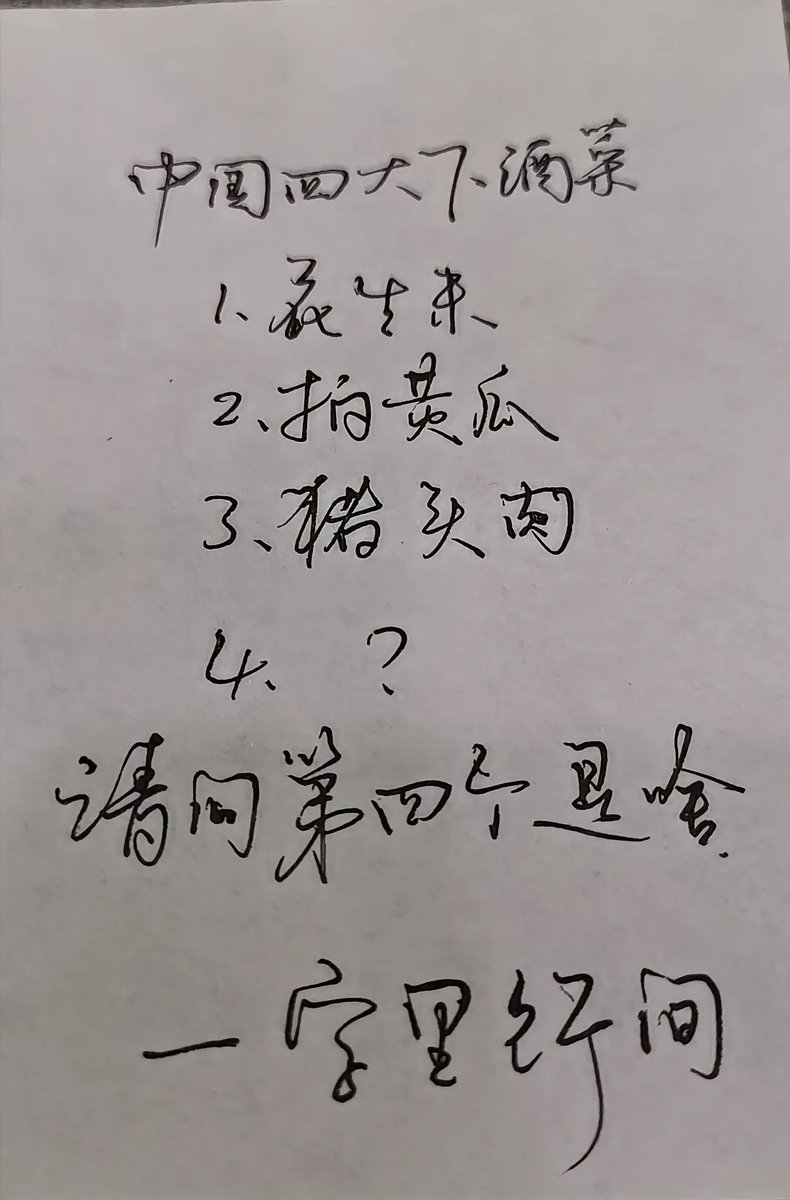 中国四大下酒菜
1、花生米
2、拍黄瓜
3、猪头肉
4、？
请问第四个是啥
一字里行间